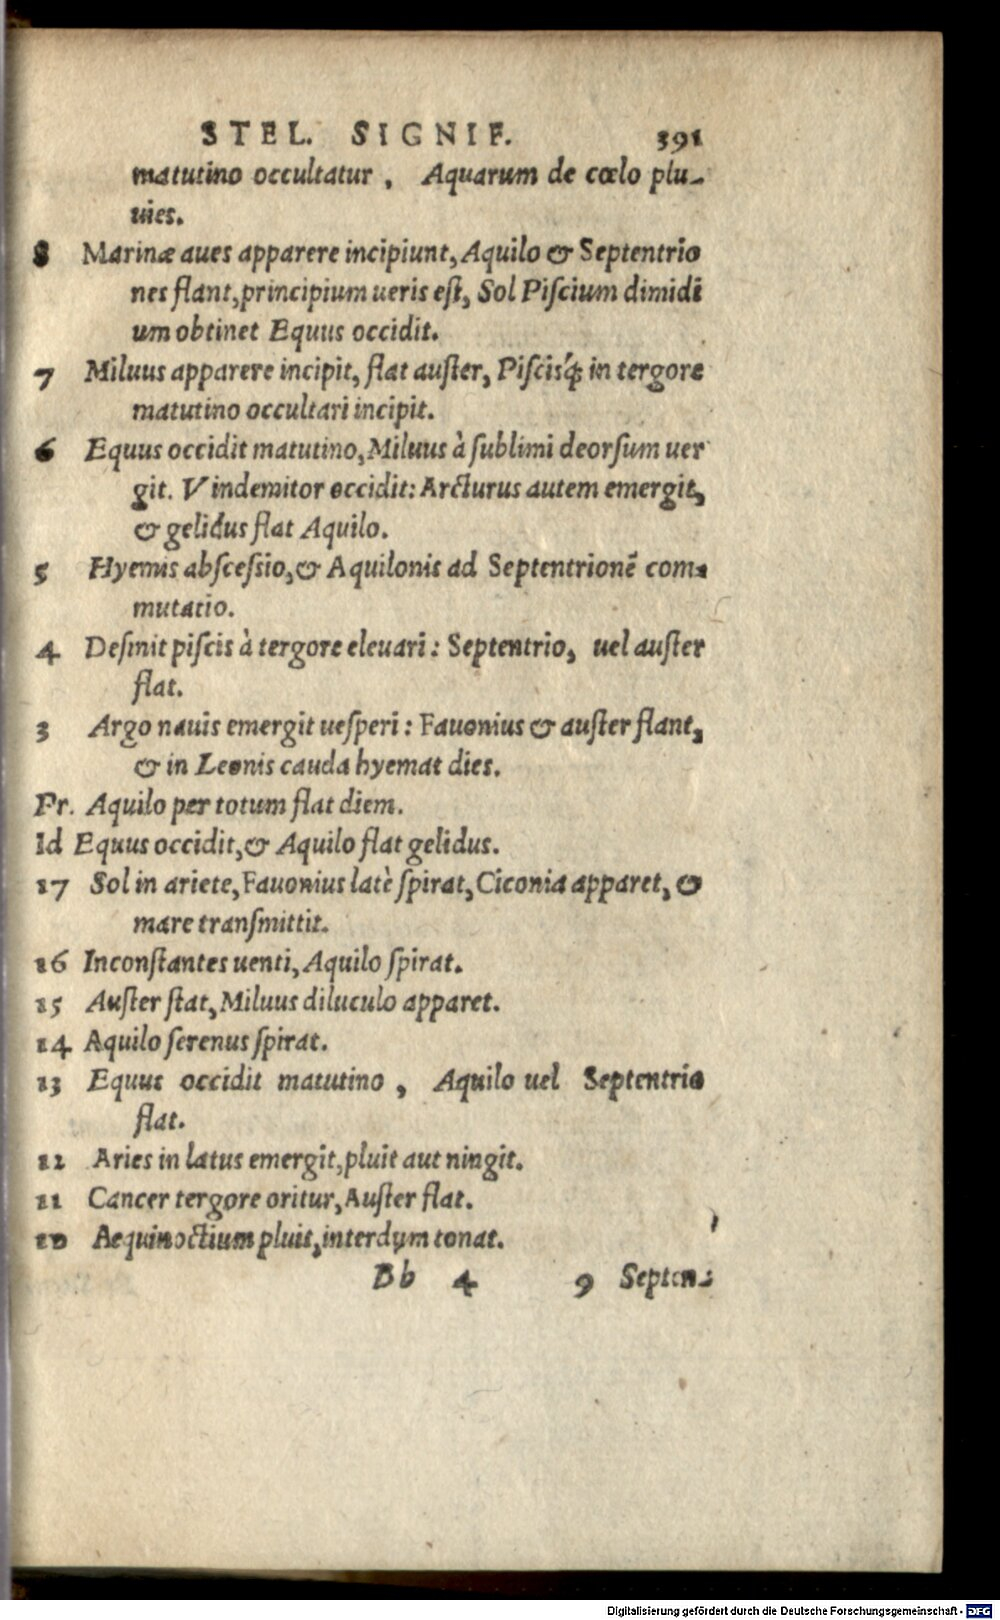 STEL. SIGNIF. 391
matutino occultatur, Aquarum de cœlo plu-
uies.
8 Marinæ aues apparere incipiunt, Aquilo & Septentrio
nes flant, principium ueris est, Sol Piscium dimidi
um obtinet Equus occidit.
7 Miluus apparere incipit, flat auster, Piscisq́; in tergore
matutino occultari incipit.
6 Equus occidit matutino, Miluus à sublimi deorsum uer
git. Vindemitor occidit: Arcturus autem emergit,
& gelidus flat Aquilo.
5 Hyemis abscessio, & Aquilonis ad Septentrionẽ com-
mutatio.
4 Desinit piscis à tergore eleuari: Septentrio, uel auster
flat.
3 Argo nauis emergit uesperi: Fauonius & auster flant,
& in Leonis cauda hyemat dies.
Pr. Aquilo per totum flat diem.
Id Equus occidit, & Aquilo flat gelidus.
17 Sol in ariete, Fauonius latè spirat, Ciconia apparet, &
mare transmittit.
16 Inconstantes uenti, Aquilo spirat.
15 Auster stat, Miluus diluculo apparet.
14 Aquilo serenus spirat.
13 Equus occidit matutino, Aquilo uel Septentrio
flat.
12 Aries in latus emergit, pluit aut ningit.
11 Cancer tergore oritur, Auster flat.
10 Aequinoctium pluit, interdum tonat.
Bb 4 9 Septen-
Digitalisierung gefördert durch die Deutsche Forschungsgemeinschaft - DFG